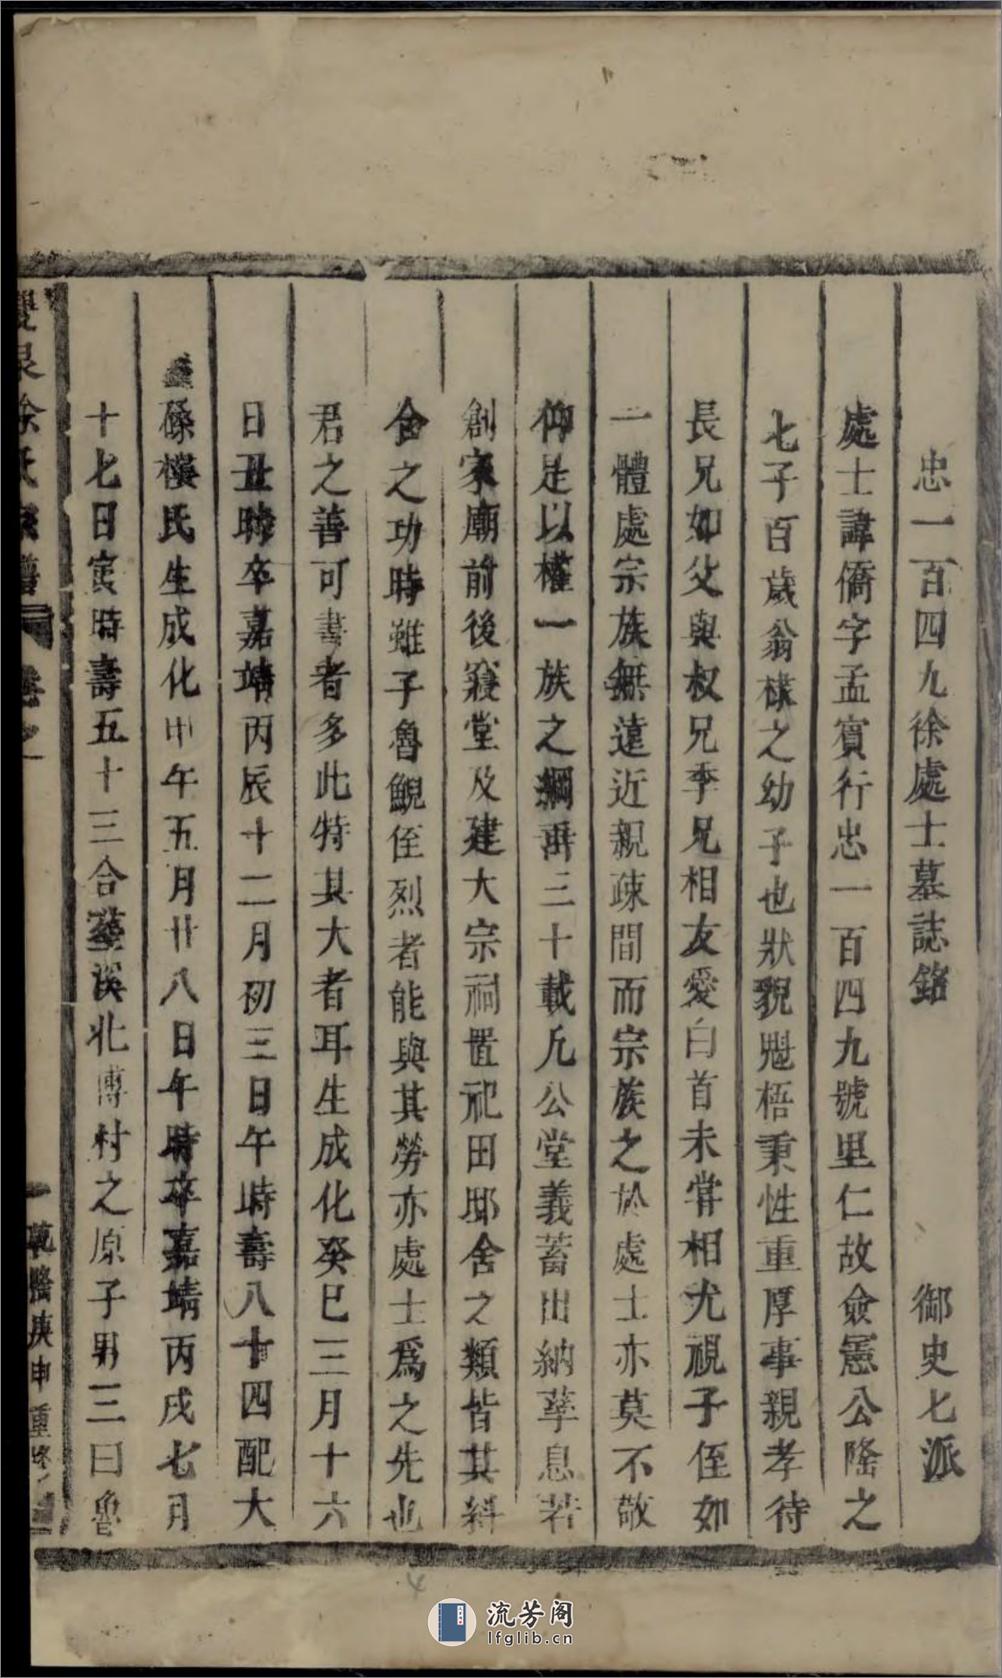 忠一百四九徐處士墓誌銘 御史七派
處士諱僑字孟賓行忠一百四九號里仁故僉憲公隆之
七子百歲翁樣之幼子也狀貌魁梧秉性重厚事親孝待
長兄如父與叔兄季兄相友愛白首未嘗相尤視子侄如
一體處宗族無遠近親疎間而宗族之於處士亦莫不敬
仰足以權一族之綱再三十載凡公堂義蓄出納孳息若
創家廟前後寢堂及建大宗祠置祀田邸舍之類皆其糾
合之功時雖子魯鯢侄烈者能與其勞亦處士爲之先也
君之善可書者多此特其大者耳生成化癸巳三月十六
日丑時卒嘉靖丙辰十二月初三日午時壽八十四配大
磉樓氏生成化甲午五月廿八日午時卒嘉靖丙戌七月
十七日寅時壽五十三合葬溪北傅村之原子男三曰魯
雙泉徐氏宗譜 卷之一 乾隆庚申重修
流芳阁
lfglib.cn